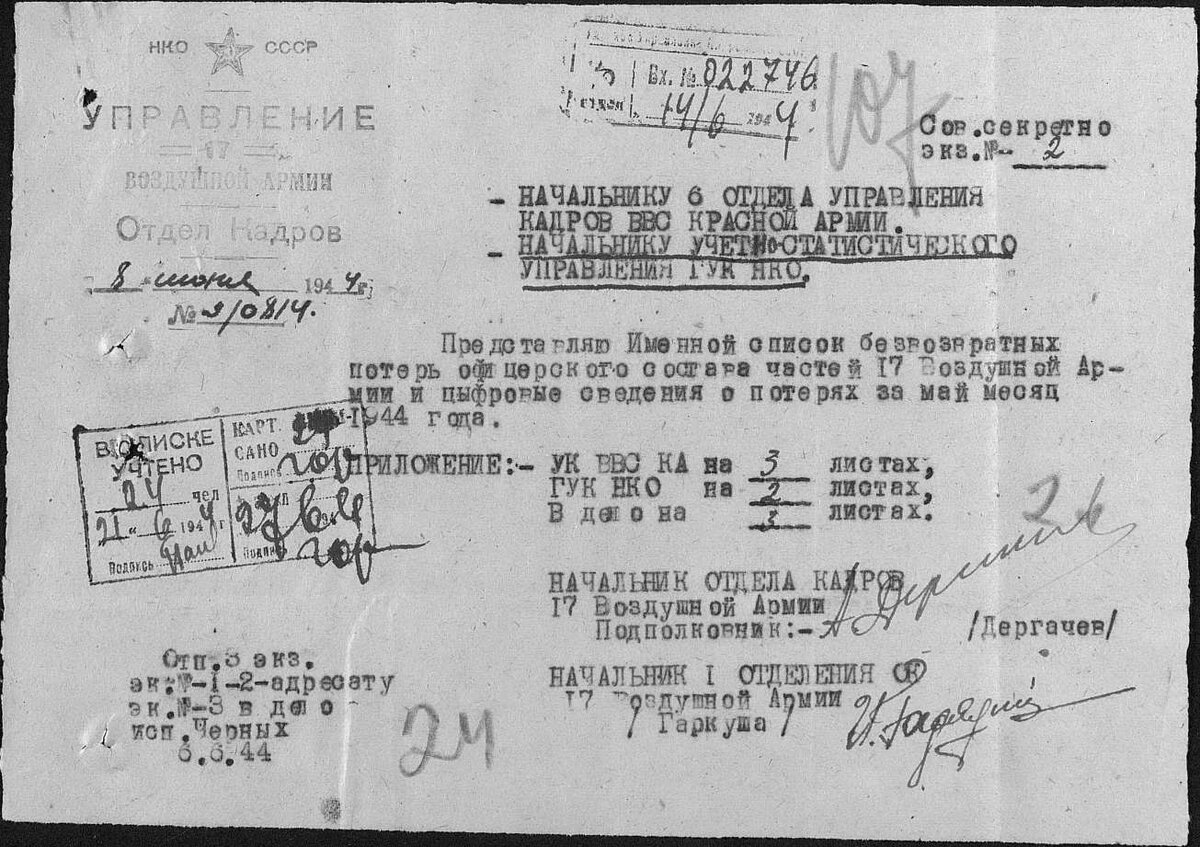 НКО СССР
УПРАВЛЕНИЕ
17
ВОЗДУШНОЙ АРМИИ
Отдел Кадров
"8" июня 1944 г.
№ 2/0814.
3 Вх. № 022746
отдел 14/6 1944
107
Сов.секретно
экз.№- 2
- НАЧАЛЬНИКУ 6 ОТДЕЛА УПРАВЛЕНИЯ
КАДРОВ ВВС КРАСНОЙ АРМИИ.
- НАЧАЛЬНИКУ УЧЕТНО-СТАТИСТИЧЕСКОГО
УПРАВЛЕНИЯ ГУК НКО.
Представляю Именной список безвозвратных
потерь офицерского состава частей 17 Воздушной Ар-
мии и цыфровые сведения о потерях за май месяц
1944 года.
ПРИЛОЖЕНИЕ:- УК ВВС КА на 3 листах,
ГУК НКО на 2 листах,
В дело на 3 листах.
В СПИСКЕ
УЧТЕНО
24 чел
21 "6 1944 г
Подпись
КАРТ.
САНО 24
Подпись
Подпись
26
НАЧАЛЬНИК ОТДЕЛА КАДРОВ
17 Воздушной Армии
Подполковник:- /Дергачев/
НАЧАЛЬНИК I ОТДЕЛЕНИЯ ОК
17 Воздушной Армии
/ Гаркуша /
Отп.3 экз.
эк.№-1-2-адресату
эк.№-3 в дело
исп.Черных
6.6.44
24